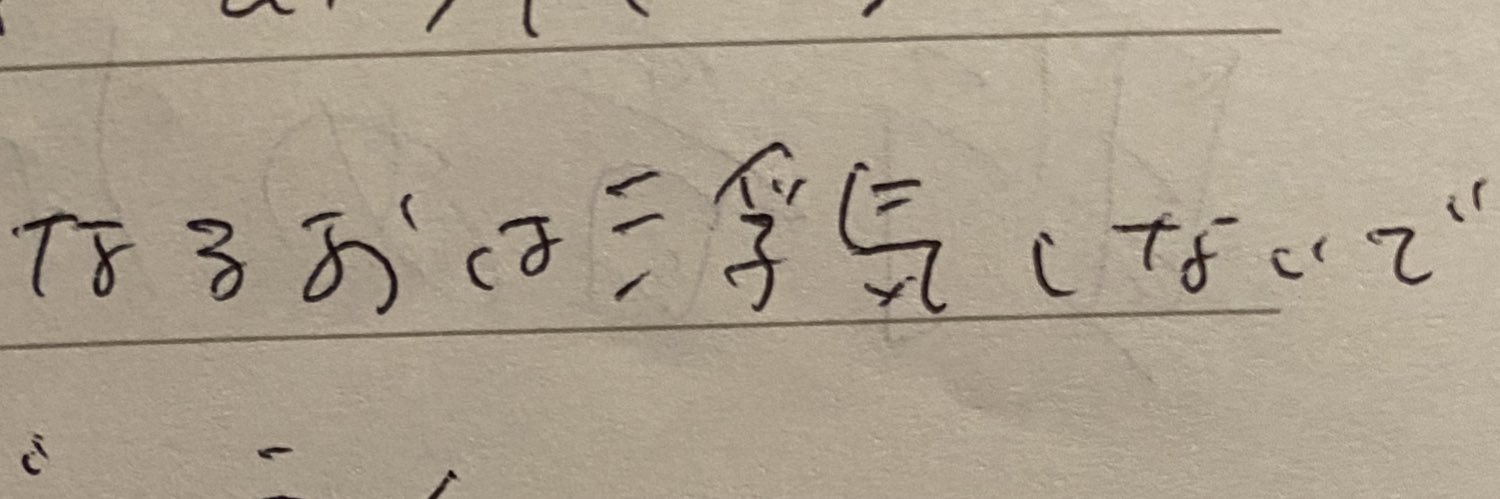 なるおは浮気しないで